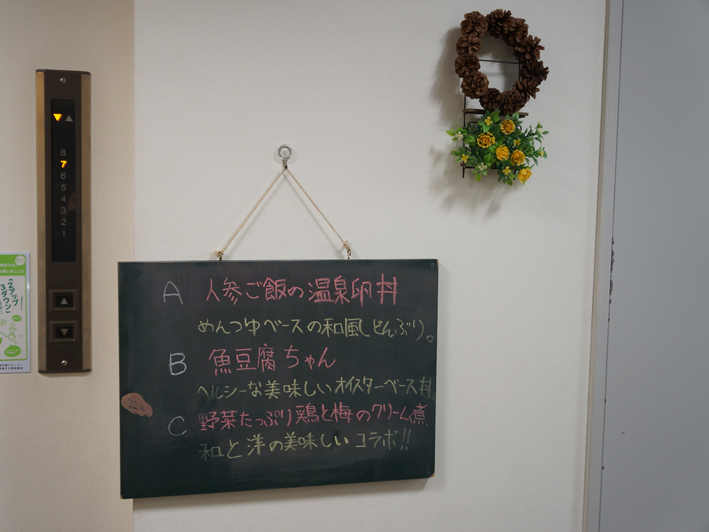 8
7
6
5
4
3
2
1
2アップ
3ダウン
A 人参ご飯の温泉卵丼
めんつゆベースの和風どんぶり。
B 魚豆腐ちゃん
ヘルシーな美味しいオイスターベース丼
C 野菜たっぷり鶏と梅のクリーム煮
和と洋の美味しいコラボ!!